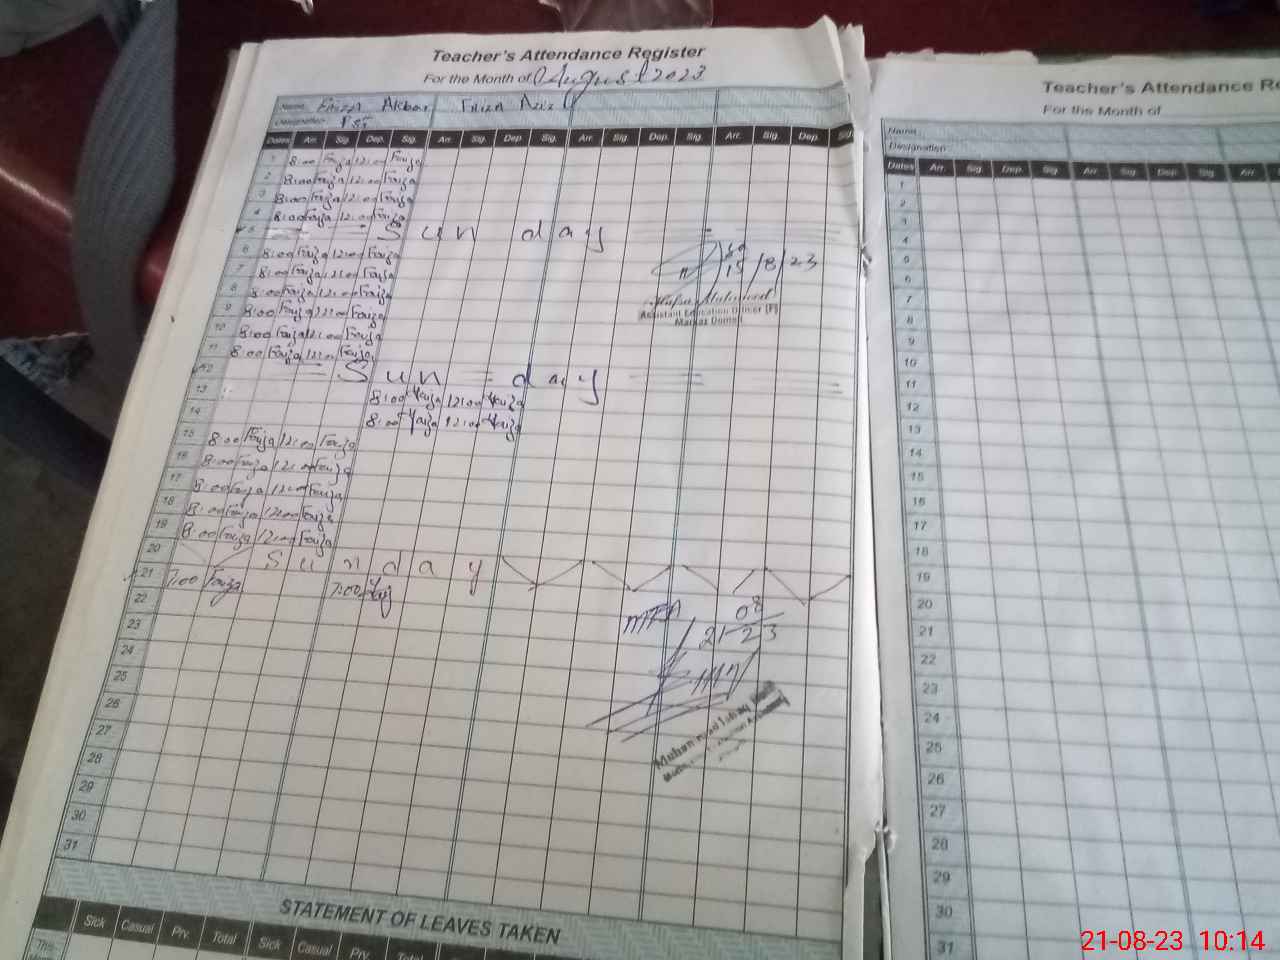 Teacher's Attendance Register
For the Month of August 2023
Name: Faiza Akbar Faiza Aziz
Designation: PST
Dates Arr. Sig. Dep. Sig. Arr. Sig. Dep. Sig. Arr. Sig. Dep. Sig. Arr. Sig. Dep. Sig.
1 8:00 Faiza 12:00 Faiza
2 8:00 Faiza 12:00 Faiza
3 8:00 Faiza 12:00 Faiza
4 8:00 Faiza 12:00 Faiza
5 Sunday
6 8:00 Faiza 12:00 Faiza
7 8:00 Faiza 12:00 Faiza
8 8:00 Faiza 12:00 Faiza
9 8:00 Faiza 12:00 Faiza
10 8:00 Faiza 12:00 Faiza
11 8:00 Faiza 12:00 Faiza
12 Sunday
13 8:00 Faiza 12:00 Faiza
14 8:00 Faiza 12:00 Faiza
15 8:00 Faiza 12:00 Faiza
16 8:00 Faiza 12:00 Faiza
17 8:00 Faiza 12:00 Faiza
18 8:00 Faiza 12:00 Faiza
19 8:00 Faiza 12:00 Faiza
20 Sunday
21 7:00 Faiza 7:00
22
23
24
25
26
27
28
29
30
31
15/8/23
Assistant Education Officer (F)
Markaz Domeli
MEA
21-08-23
STATEMENT OF LEAVES TAKEN
Sick Casual Prv. Total Sick Casual Prv. Total
This
Teacher's Attendance Re
For the Month of
Name:
Designation:
Dates Arr. Sig. Dep. Sig. Arr. Sig. Dep. Sig. Arr.
1
2
3
4
5
6
7
8
9
10
11
12
13
14
15
16
17
18
19
20
21
22
23
24
25
26
27
28
29
30
31
21-08-23 10:14